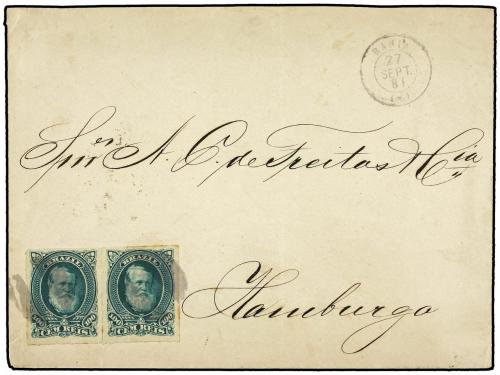 BAHIA
27
SEPT.
81
Snr.es A. C. de Freitas & Cia
Hamburgo
BRAZIL BRAZIL
100 100 100 100
CEM REIS CEM REIS